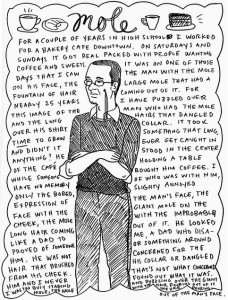 mole
FOR A COUPLE OF YEARS IN HIGH SCHOOL I WORKED
FOR A BAKERY CAFE DOWNTOWN. ON SATURDAYS AND
SUNDAYS IT GOT REAL PACKED WITH PEOPLE WANTING
COFFEE AND SWEETS. IT WAS ON ONE OF THOSE
DAYS THAT I SAW THE MAN WITH THE MOLE
ON HIS FACE, THE LARGE MOLE THAT HAD A
FOUNTAIN OF HAIR COMING OUT OF IT. FOR
NEARLY 25 YEARS I HAVE PUZZLED OVER
THIS IMAGE OF THE MAN WHO HAD THE MOLE
AND THE LONG HAIRS THAT DANGLED
OVER HIS SHIRT COLLAR. IT TOOK
TIME TO GROW SOMETHING THAT LONG,
AND DIDN'T IT EVER GET CAUGHT IN
ANYTHING? HE STOOD IN THE CENTER
OF THE CAFE HOLDING A TABLE
WHILE SOMEONE BOUGHT HIM COFFEE. I
HAVE NO MEMORY OF WHO WAS WITH HIM,
ONLY THE BORED, SLIGHTLY ANNOYED
EXPRESSION OF THE MAN'S FACE, THE
FACE WITH THE GIANT MOLE ON THE
CHEEK, THE MOLE WITH THE IMPROBABLE
LONG HAIR COMING OUT OF IT. HE LOOKED
LIKE A DAD TO ME, A DAD WHO DISA-
PROVED OF SOMEONE OR SOMETHING AROUND
HIM. HE WAS NOT CONCERNED FOR THE
HAIR THAT BRUSHED HIS COLLAR OR DANGLED
FROM HIS CHEEK. THAT'S NOT WHAT
HIM AND I NEVER FOUND OUT WHAT IT WAS.
I WAS BUSY STARING AND PUZZLING OVER THE
MOLE, THE MOLE OUT OF THE MAN'S FACE.